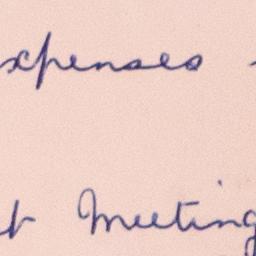 xpenses
Meeting